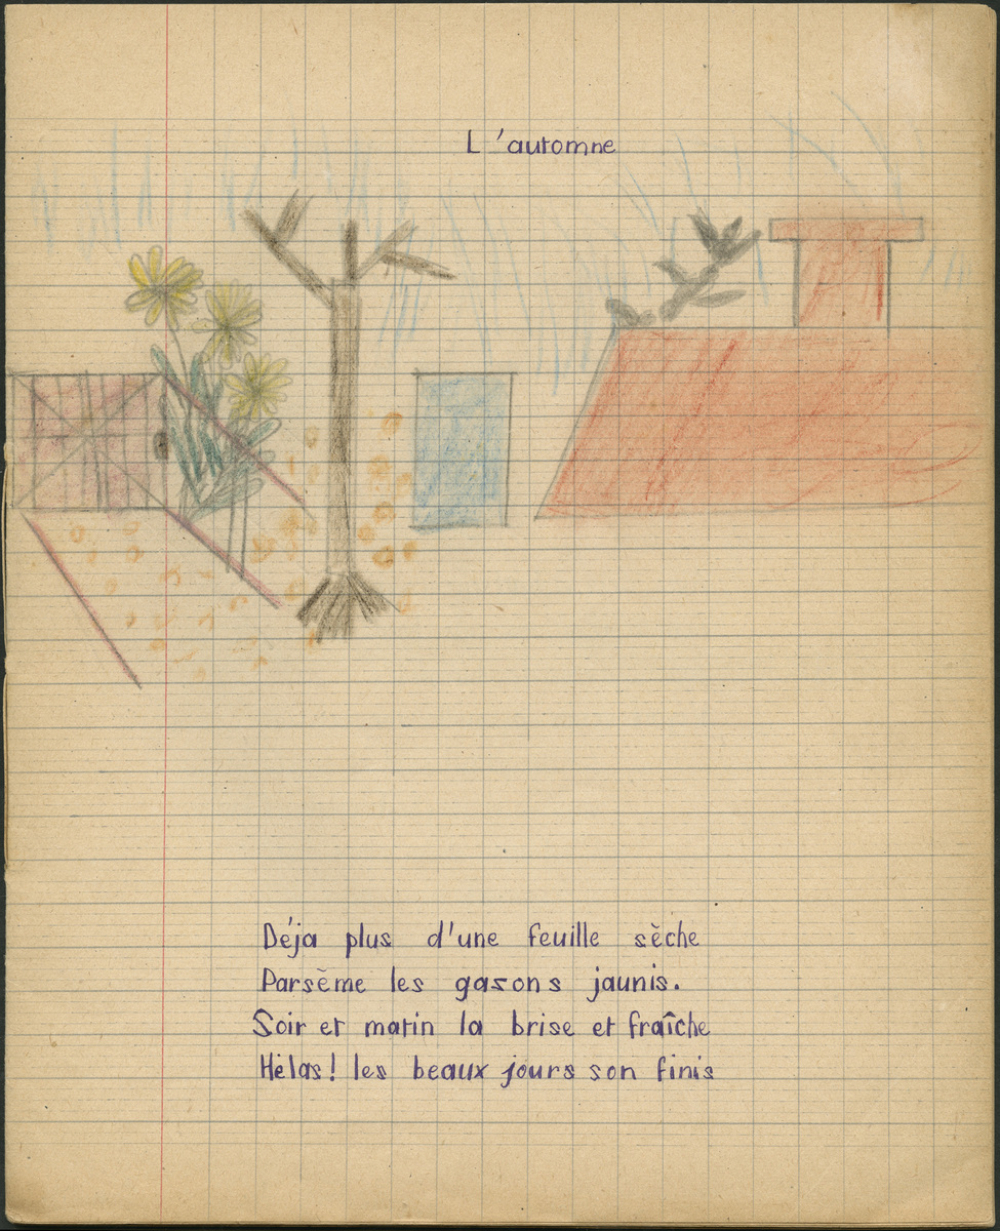 L'automne
Déja plus d'une feuille sèche
Parsème les gasons jaunis.
Soir et matin la brise et fraîche
Hélas! les beaux jours son finis